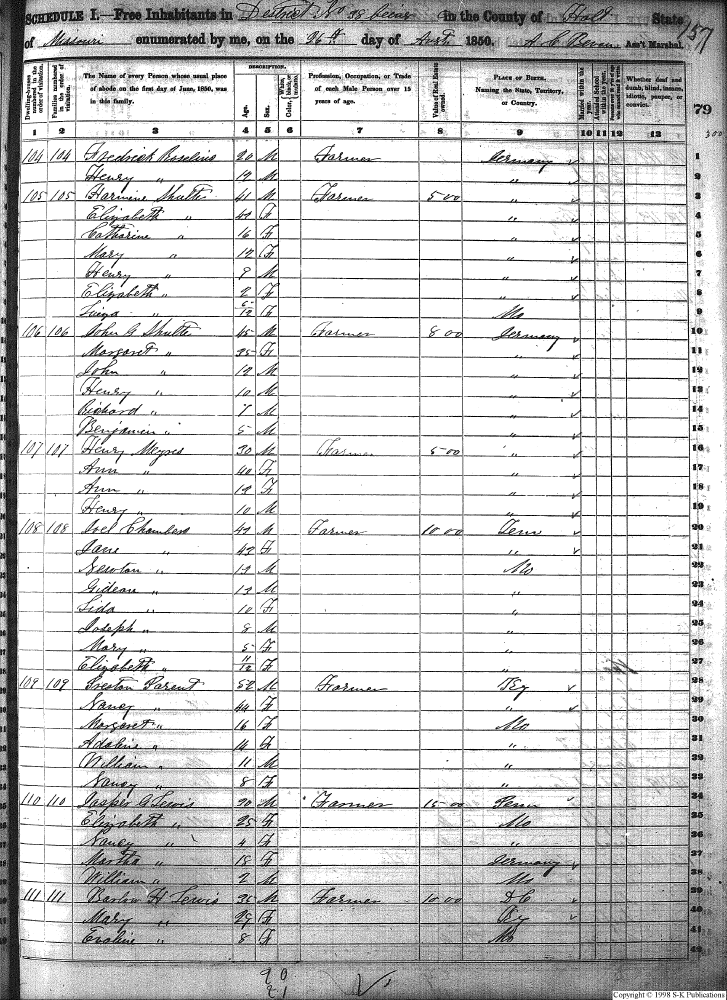 SCHEDULE I.—Free Inhabitants in District No 38 being in the County of Holt State
of Missouri enumerated by me, on the 26th day of 1850. A C Bevan Ass't Marshal. 157
Dwelling-houses numbered in the order of visitation.
Families numbered in the order of visitation.
The Name of every Person whose usual place of abode on the first day of June, 1850, was in this family.
DESCRIPTION.
Age.
Sex.
Color, White, black, or mulatto.
Profession, Occupation, or Trade of each Male Person over 15 years of age.
Value of Real Estate owned.
PLACE OF BIRTH. Naming the State, Territory, or Country.
Married within the year.
Attended School within the year.
Whether deaf and dumb, blind, insane, idiotic, pauper, or convict.
79
1 2 3 4 5 6 7 8 9 10 11 12 13
104 104 Fredrick 20 M Farmer Germany 1
Henry " 12 M " 2
105 105 Harmine Shutte 41 M Farmer 500 " 3
Elizabeth " 40 F " 4
Catharine " 16 F " 5
Mary " 12 F " 6
Henry " 9 M " 7
Elizabeth " 2 F " 8
5/12 F Mo 9
106 106 John G Shutte 45 M Farmer 800 Germany 10
Margaret " 35 F " 11
John " 12 M " 12
Henry " 10 M " 13
Richard " 7 M " 14
Benjamin " 5 M " 15
107 107 Henry 30 M Farmer 500 " 16
Ann " 40 F " 17
Ann " 12 F " 18
Henry " 10 M " 19
108 108 Joel Chambers 42 M Farmer 1000 Tenn 20
Jane " 42 F " 21
Newton " 12 M Mo 22
Gideon " 12 M " 23
" 10 F " 24
Joseph " 8 M " 25
Mary " 5 F " 26
Elizabeth " 11/12 F " 27
109 109 Preston Parent 52 M Farmer Ky 28
Nancy " 44 F " 29
Margaret " 16 F Mo 30
Adaline " 14 F " 31
William " 11 M " 32
Nancy " 8 F " 33
110 110 Jasper G Lewis 30 M Farmer 1500 Penn 34
Elizabeth " 25 F Mo 35
Nancy " 4 F " 36
Martha " 18 F Germany 37
William " 2 M Mo 38
111 111 Barton H Lewis 35 M Farmer 1000 39
Mary " 29 F Ky 40
Evaline " 8 F Mo 41
42
20
21
Copyright © 1998 S-K Publications